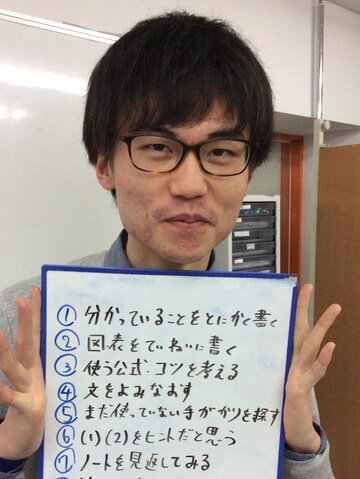 ① 分かっていることをとにかく書く
② 図表をていねいに書く
③ 使う公式・コツを考える
④ 文をよみなおす
⑤ まだ使っていない手がかりを探す
⑥ (1)(2)をヒントだと思う
⑦ ノートを見返してみる